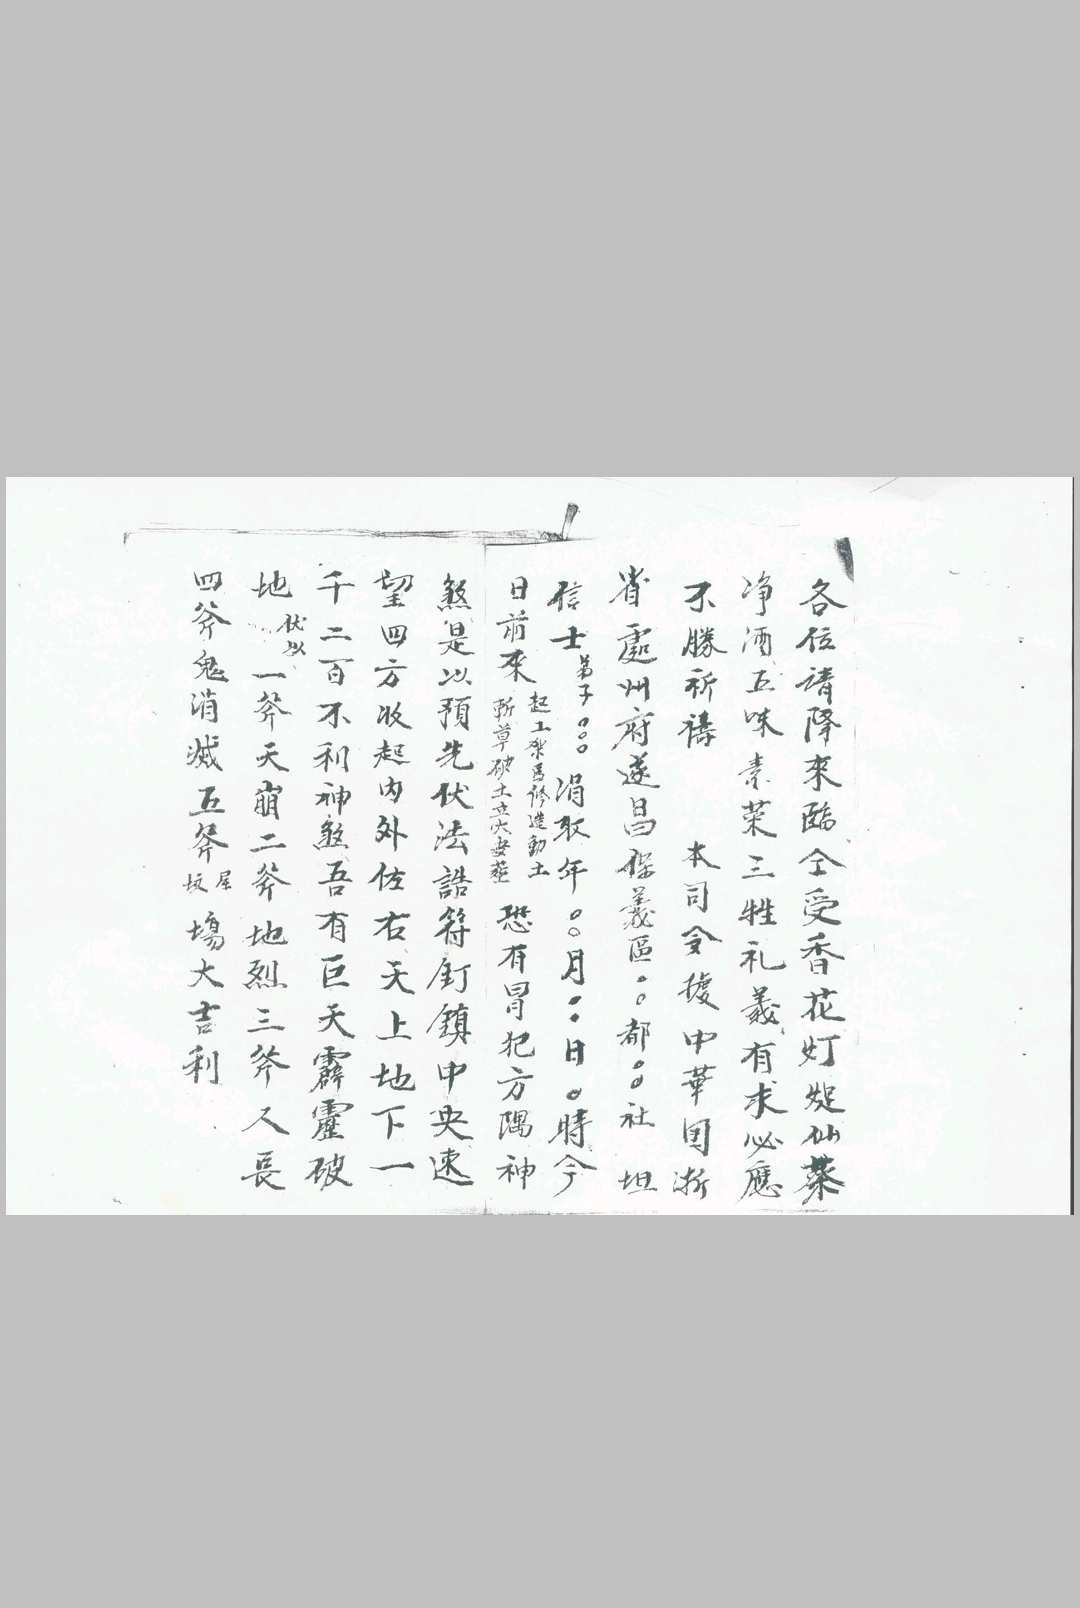 各位请降來臨仝受香花灯燭仙蔡
净酒五味素菜三牲礼義有求必應
不勝祈禱 本司今據中華国浙
省處州府遂昌保義區○○都○○社坦
信士弟子○○○涓取年○○月○○日○時今
日前來
起工架馬修造動土
斬草破土立穴安葬
恐有冒犯方隅神
煞是以預先伏法誥符釘鎮中央速
望四方收起内外佐右天上地下一
千二百不利神煞吾有巨天霹靂破
地伏以一斧天崩二斧地烈三斧人長
四斧鬼消滅五斧屋坟塲大吉利